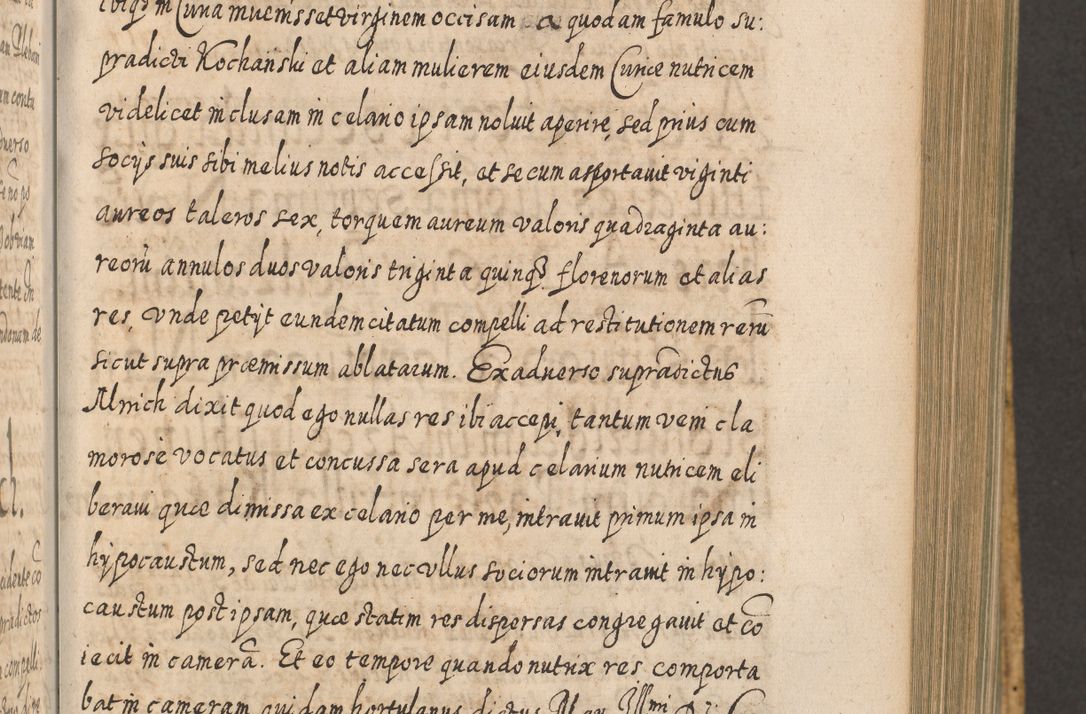 ibiq3 in Curia muenisset virginem occisam a quodam famulo su:
pradicti Kochański et aliam mulierem eiusdem Curiæ nutricem
videlicet inclusam in celario ipsam noluit aperire, sed prius cum
socijs suis sibi melius notis accessit, et secum asportauit viginti
aureos taleros sex, torquem aureum valoris quadraginta au:
reorū annulos duos valoris triginta quinq3 florenorum et alias
res, vnde petijt eundem citatum compelli ad restitutionem rerū
sicut supra præmissum ablatarum. Ex aduerso supradictus
Alrich dixit quod ego nullas res ibi accepi, tantum veni cla
morose vocatus et concussa sera apud celarium nutricem eli
beraui quæ dimissa ex celario per me, intrauit primum ipsa in
hypocaustum, sed nec ego nec vllus sociorum intrauit in hypo:
caustum post ipsam, quæ statim res dispersas congregauit et cō
iecit in camerā. Et eo tempore quando nutrix res comporta
bat in cameram quidam hortulanus dictus